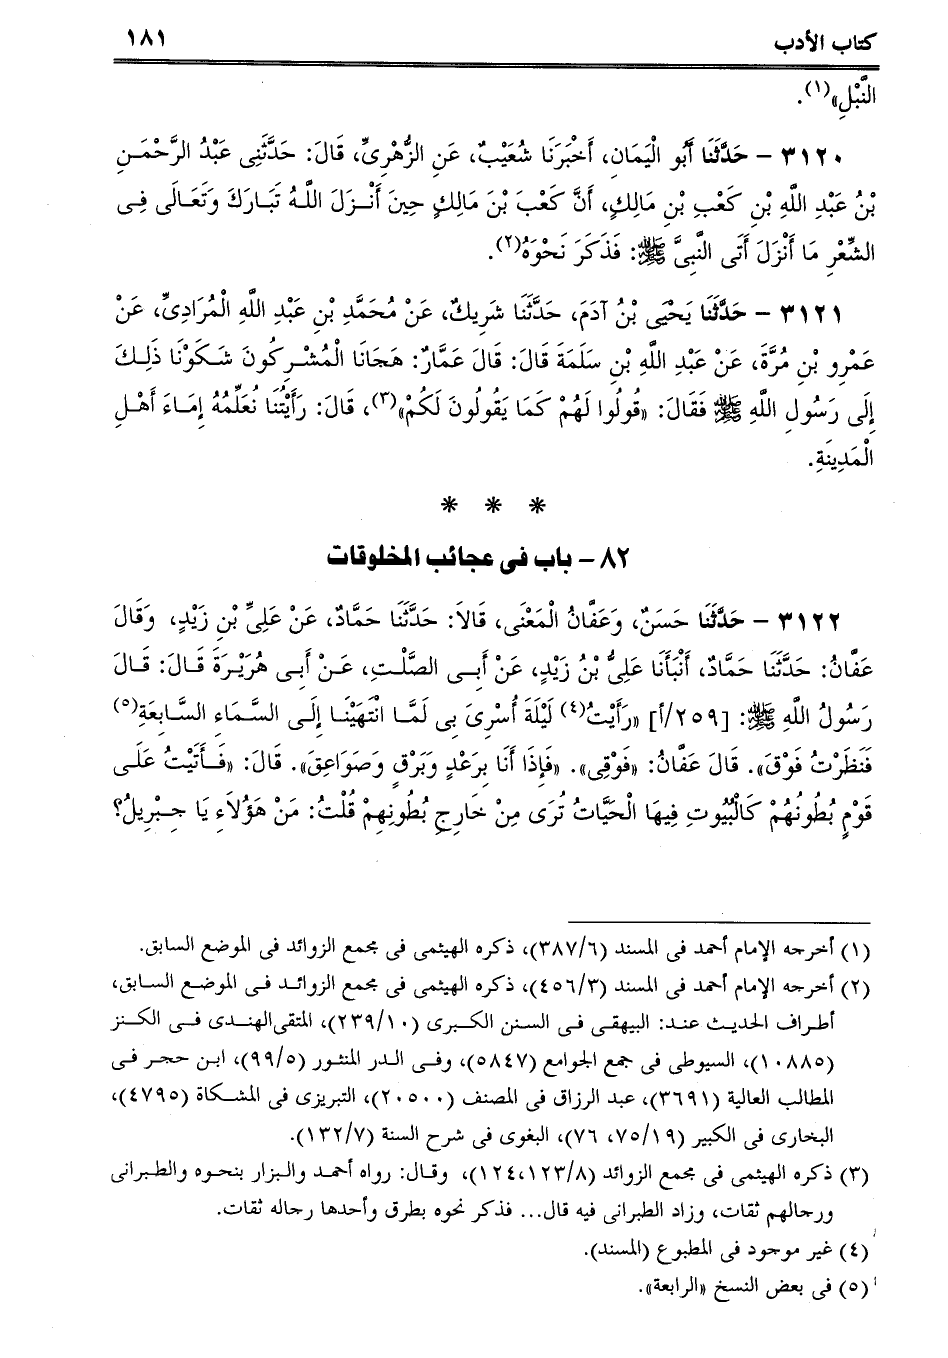 كتاب الأدب ١٨١
النَّبْلِ»(١).
٣١٢٠ – حَدَّثَنَا أَبُو الْيَمَانِ، أَخْبَرَنَا شُعَيْبٌ، عَنِ الزُّهْرِىِّ، قَالَ: حَدَّثَنِى عَبْدُ الرَّحْمَنِ
بْنُ عَبْدِ اللَّهِ بْنِ كَعْبِ بْنِ مَالِكٍ، أَنَّ كَعْبَ بْنَ مَالِكٍ حِينَ أَنْزَلَ اللَّهُ تَبَارَكَ وَتَعَالَى فِى
الشِّعْرِ مَا أَنْزَلَ أَتَى النَّبِىَّ ﷺ: فَذَكَرَ نَحْوَهُ(٢).
٣١٢١ – حَدَّثَنَا يَحْيَى بْنُ آدَمَ، حَدَّثَنَا شَرِيكٌ، عَنْ مُحَمَّدِ بْنِ عَبْدِ اللَّهِ الْمُرَادِىِّ، عَنْ
عَمْرِو بْنِ مُرَّةَ، عَنْ عَبْدِ اللَّهِ بْنِ سَلَمَةَ قَالَ: قَالَ عَمَّارٌ: هَجَانَا الْمُشْرِكُونَ شَكَوْنَا ذَلِكَ
إِلَى رَسُولِ اللَّهِ ﷺ فَقَالَ: «قُولُوا لَهُمْ كَمَا يَقُولُونَ لَكُمْ»(٣)، قَالَ: رَأَيْتُنَا نُعَلِّمُهُ إِمَاءَ أَهْلِ
الْمَدِينَةِ.
* * *
٨٢ – باب فى عجائب المخلوقات
٣١٢٢ – حَدَّثَنَا حَسَنٌ، وَعَفَّانُ الْمَعْنَى، قَالاَ: حَدَّثَنَا حَمَّادٌ، عَنْ عَلِىِّ بْنِ زَيْدٍ، وَقَالَ
عَفَّانُ: حَدَّثَنَا حَمَّادٌ، أَنْبَأَنَا عَلِىُّ بْنُ زَيْدٍ، عَنْ أَبِى الصَّلْتِ، عَنْ أَبِى هُرَيْرَةَ قَالَ: قَالَ
رَسُولُ اللَّهِ ﷺ: [٢٥٩/أ] «رَأَيْتُ(٤) لَيْلَةَ أُسْرِىَ بِى لَمَّا انْتَهَيْنَا إِلَى السَّمَاءِ السَّابِعَةِ(٥)
فَنَظَرْتُ فَوْقَ». قَالَ عَفَّانُ: «فَوْقِى». «فَإِذَا أَنَا بِرَعْدٍ وَبَرْقٍ وَصَوَاعِقَ». قَالَ: «فَأَتَيْتُ عَلَى
قَوْمٍ بُطُونُهُمْ كَالْبُيُوتِ فِيهَا الْحَيَّاتُ تُرَى مِنْ خَارِجِ بُطُونِهِمْ قُلْتُ: مَنْ هَؤُلاَءِ يَا جِبْرِيلُ؟
(١) أخرجه الإمام أحمد فى المسند (٣٨٧/٦)، ذكره الهيثمى فى مجمع الزوائد فى الموضع السابق.
(٢) أخرجه الإمام أحمد فى المسند (٤٥٦/٣)، ذكره الهيثمى فى مجمع الزوائد فى الموضع السابق،
أطراف الحديث عند: البيهقى فى السنن الكبرى (٢٣٩/١٠)، المتقى الهندى فى الكنز
(١٠٨٨٥)، السيوطى فى جمع الجوامع (٥٨٤٧)، وفى الدر المنثور (٩٩/٥)، ابن حجر فى
المطالب العالية (٣٦٩١)، عبد الرزاق فى المصنف (٢٠٥٠٠)، التبريزى فى المشكاة (٤٧٩٥)،
البخارى فى الكبير (٧٥/١٩، ٧٦)، البغوى فى شرح السنة (١٣٢/٧).
(٣) ذكره الهيثمى فى مجمع الزوائد (١٢٤،١٢٣/٨)، وقال: رواه أحمد والبزار بنحوه والطبرانى
ورحالهم ثقات، وزاد الطبرانى فيه قال... فذكر نحوه بطرق وأحدها رحاله ثقات.
(٤) غير موجود فى المطبوع (المسند).
(٥) فى بعض النسخ «الرابعة».